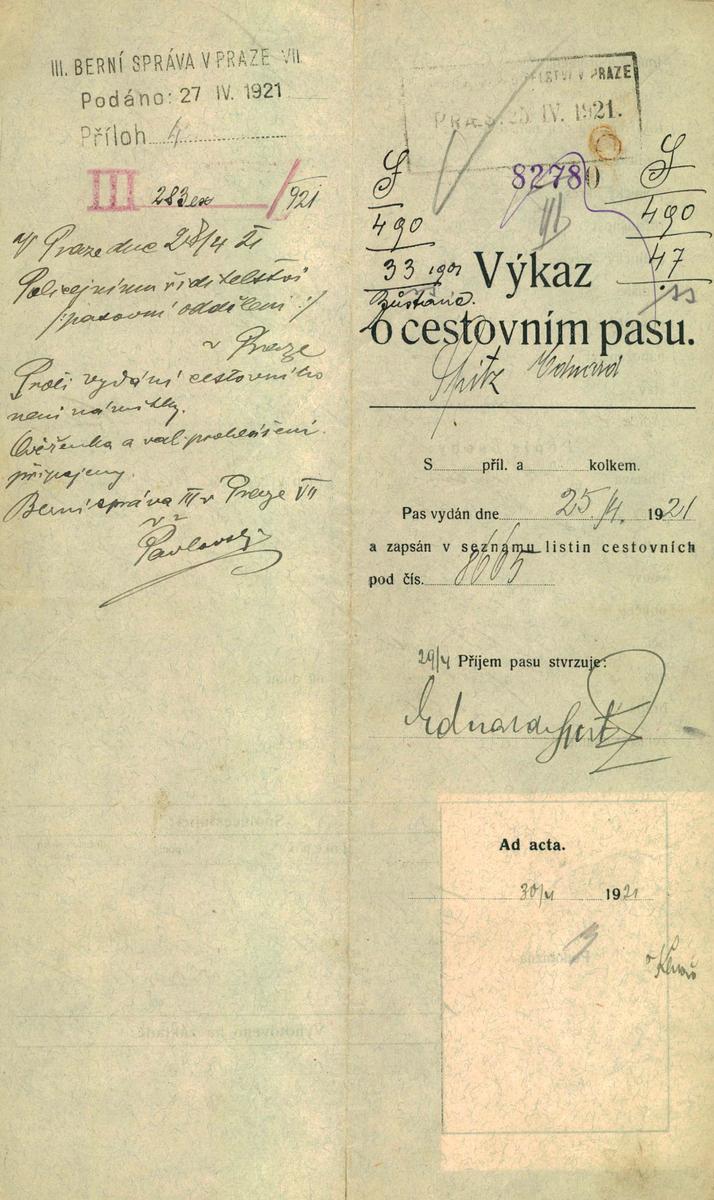 III. BERNÍ SPRÁVA V PRAZE VII
Podáno: 27 IV. 1921
Příloh 4
III 283ex / 921
V Praze dne 28/4 21
Policejnímu ředitelství
/: pasovní oddělení :/
v Praze
Proti vydání cestovního
není námitky.
a val. prohlášení
připojeny.
Berní správa III v Praze VII
Pavlovský
ŘEDITELSTVÍ V PRAZE
PRAES. 25. IV. 1921.
82780
III
S
490
33 1901
Zůstane.
S
490
47
Výkaz
o cestovním pasu.
Spitz Eduard
S příl. a kolkem.
Pas vydán dne 25/4. 1921
a zapsán v seznamu listin cestovních
pod čís. 8665
29/4 Příjem pasu stvrzuje:
Eduard Spitz
Ad acta.
30/4 1921